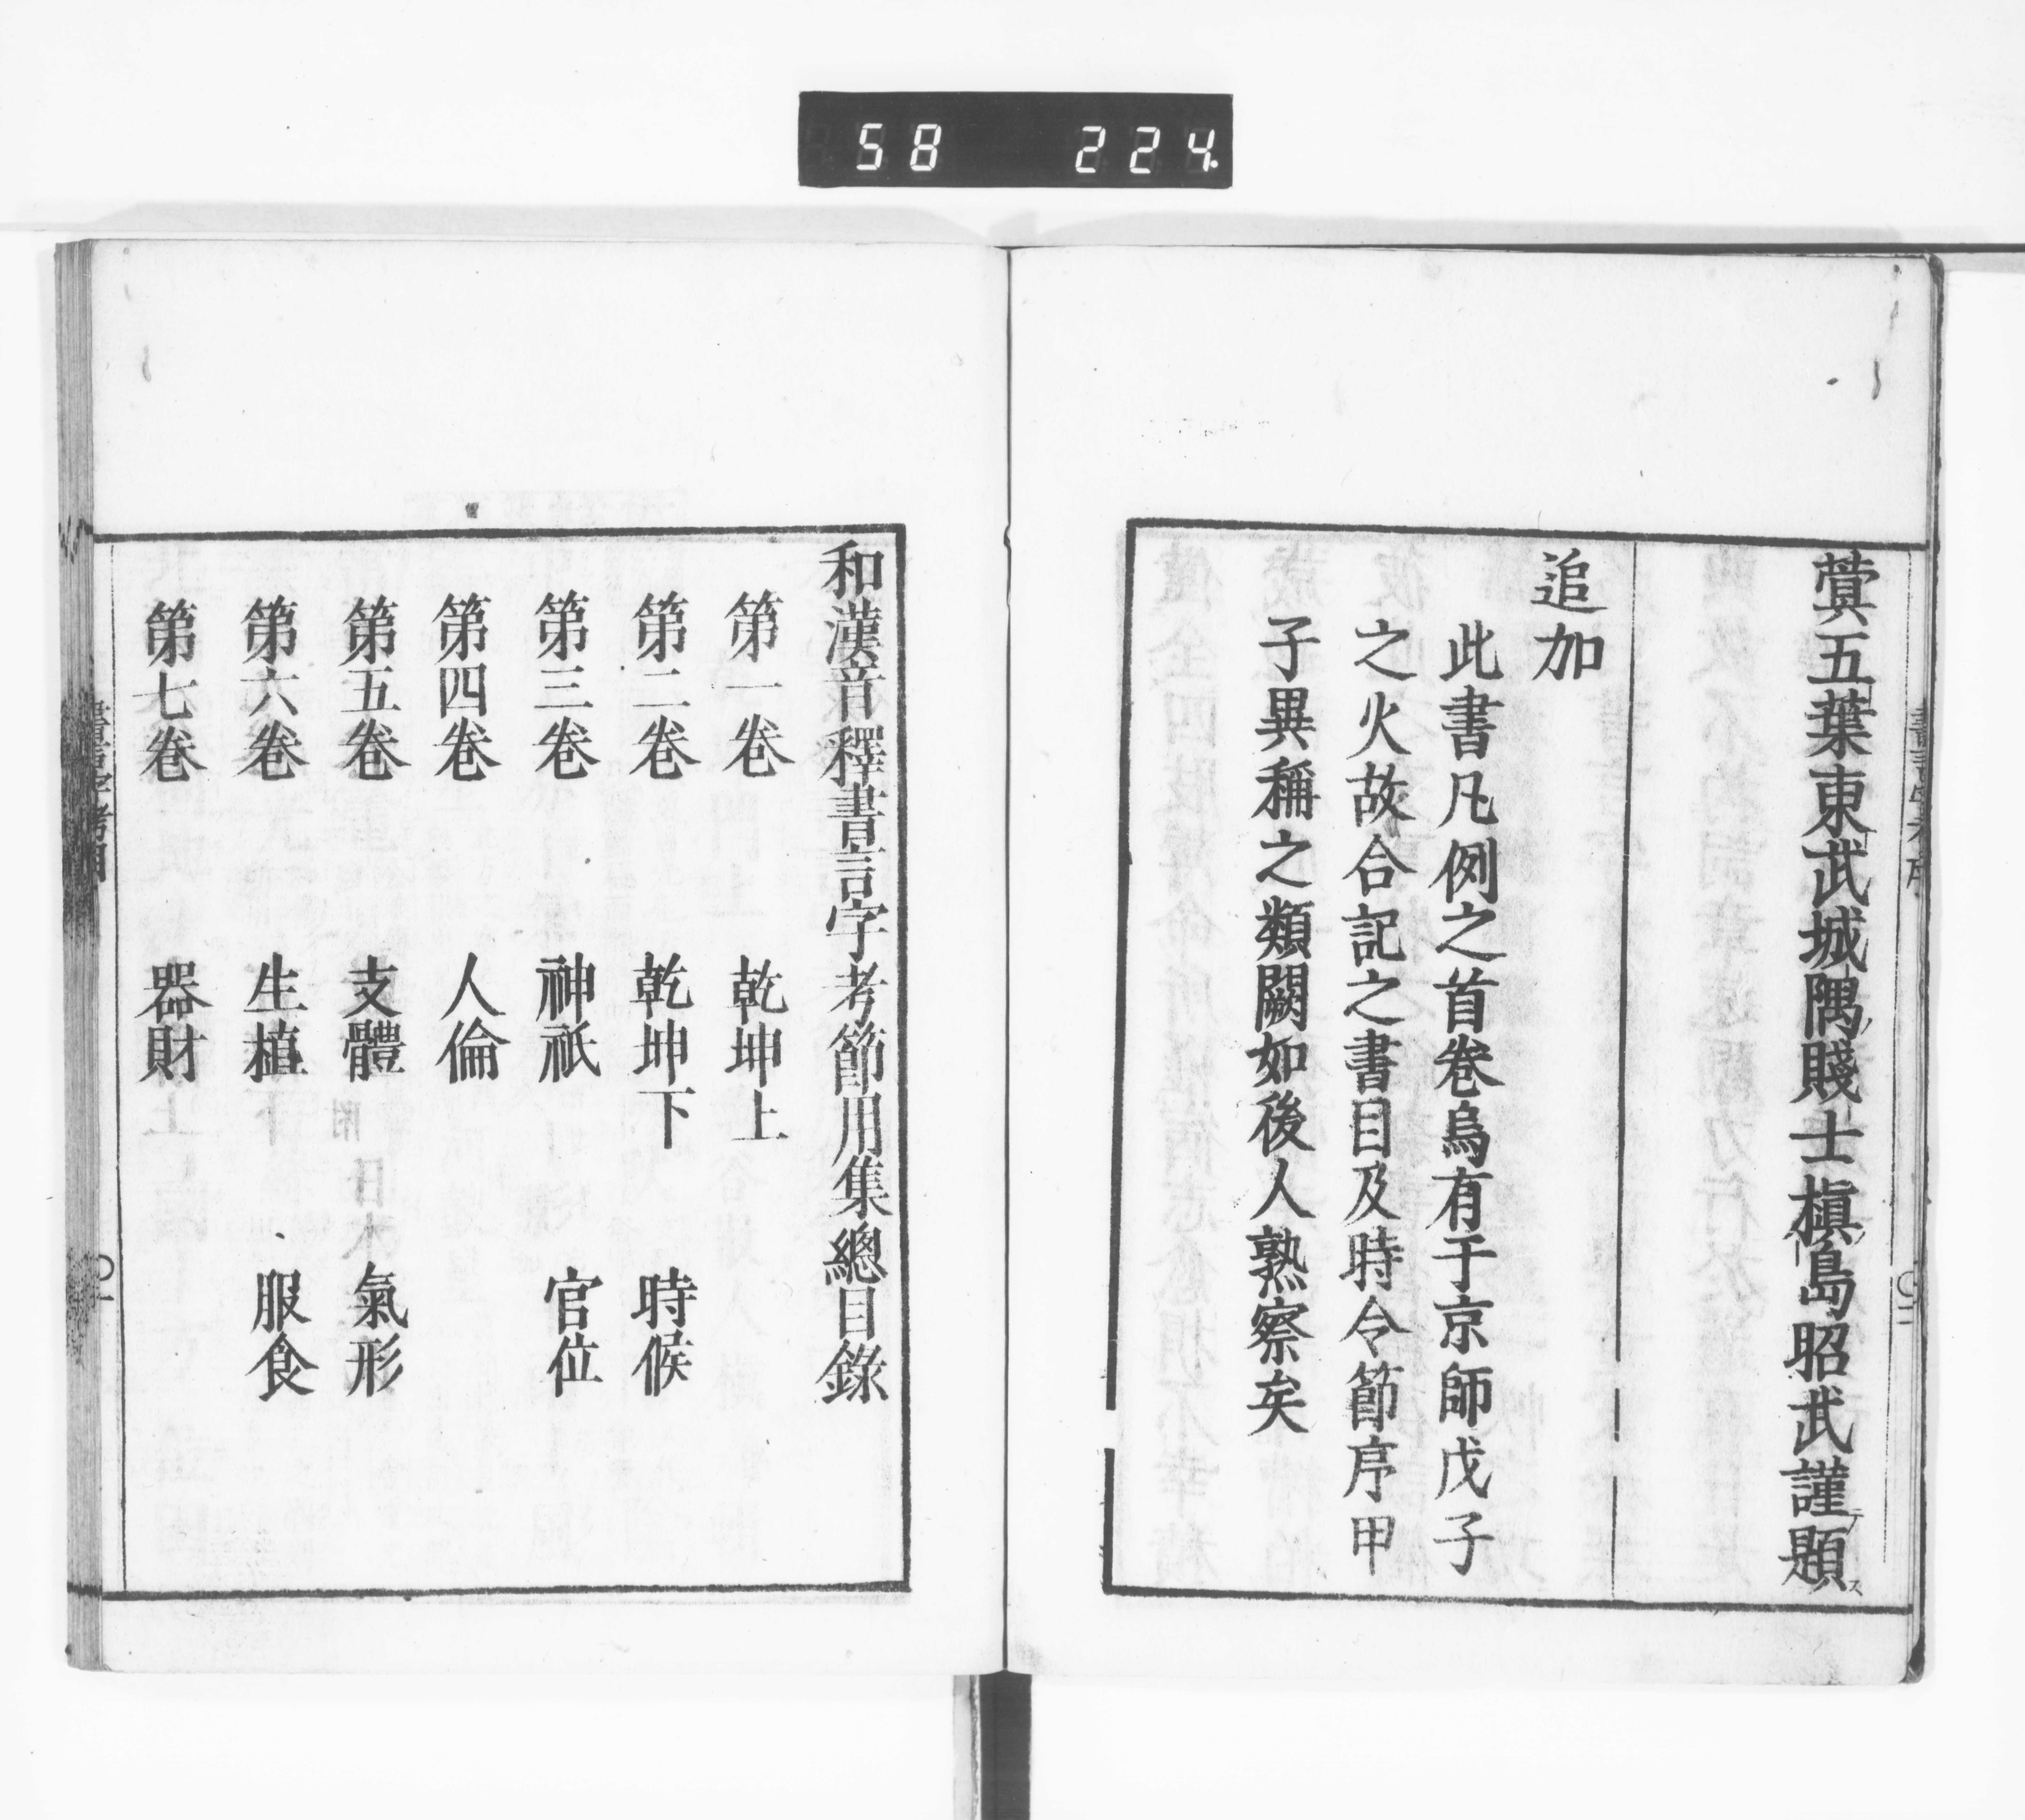 58 224
蓂五葉東武城隅賤士槇島昭武謹題
追加
此書凡例之首卷烏有于京師戊子
之火故合記之書目及時令節序甲
子異稱之類闕如後人熟察矣
和漢音釋書言字考節用集總目錄
第一卷 乾坤上
第二卷 乾坤下 時候
第三卷 神祇 官位
第四卷 人倫
第五卷 支體 氣形
第六卷 生植 服食
第七卷 器財